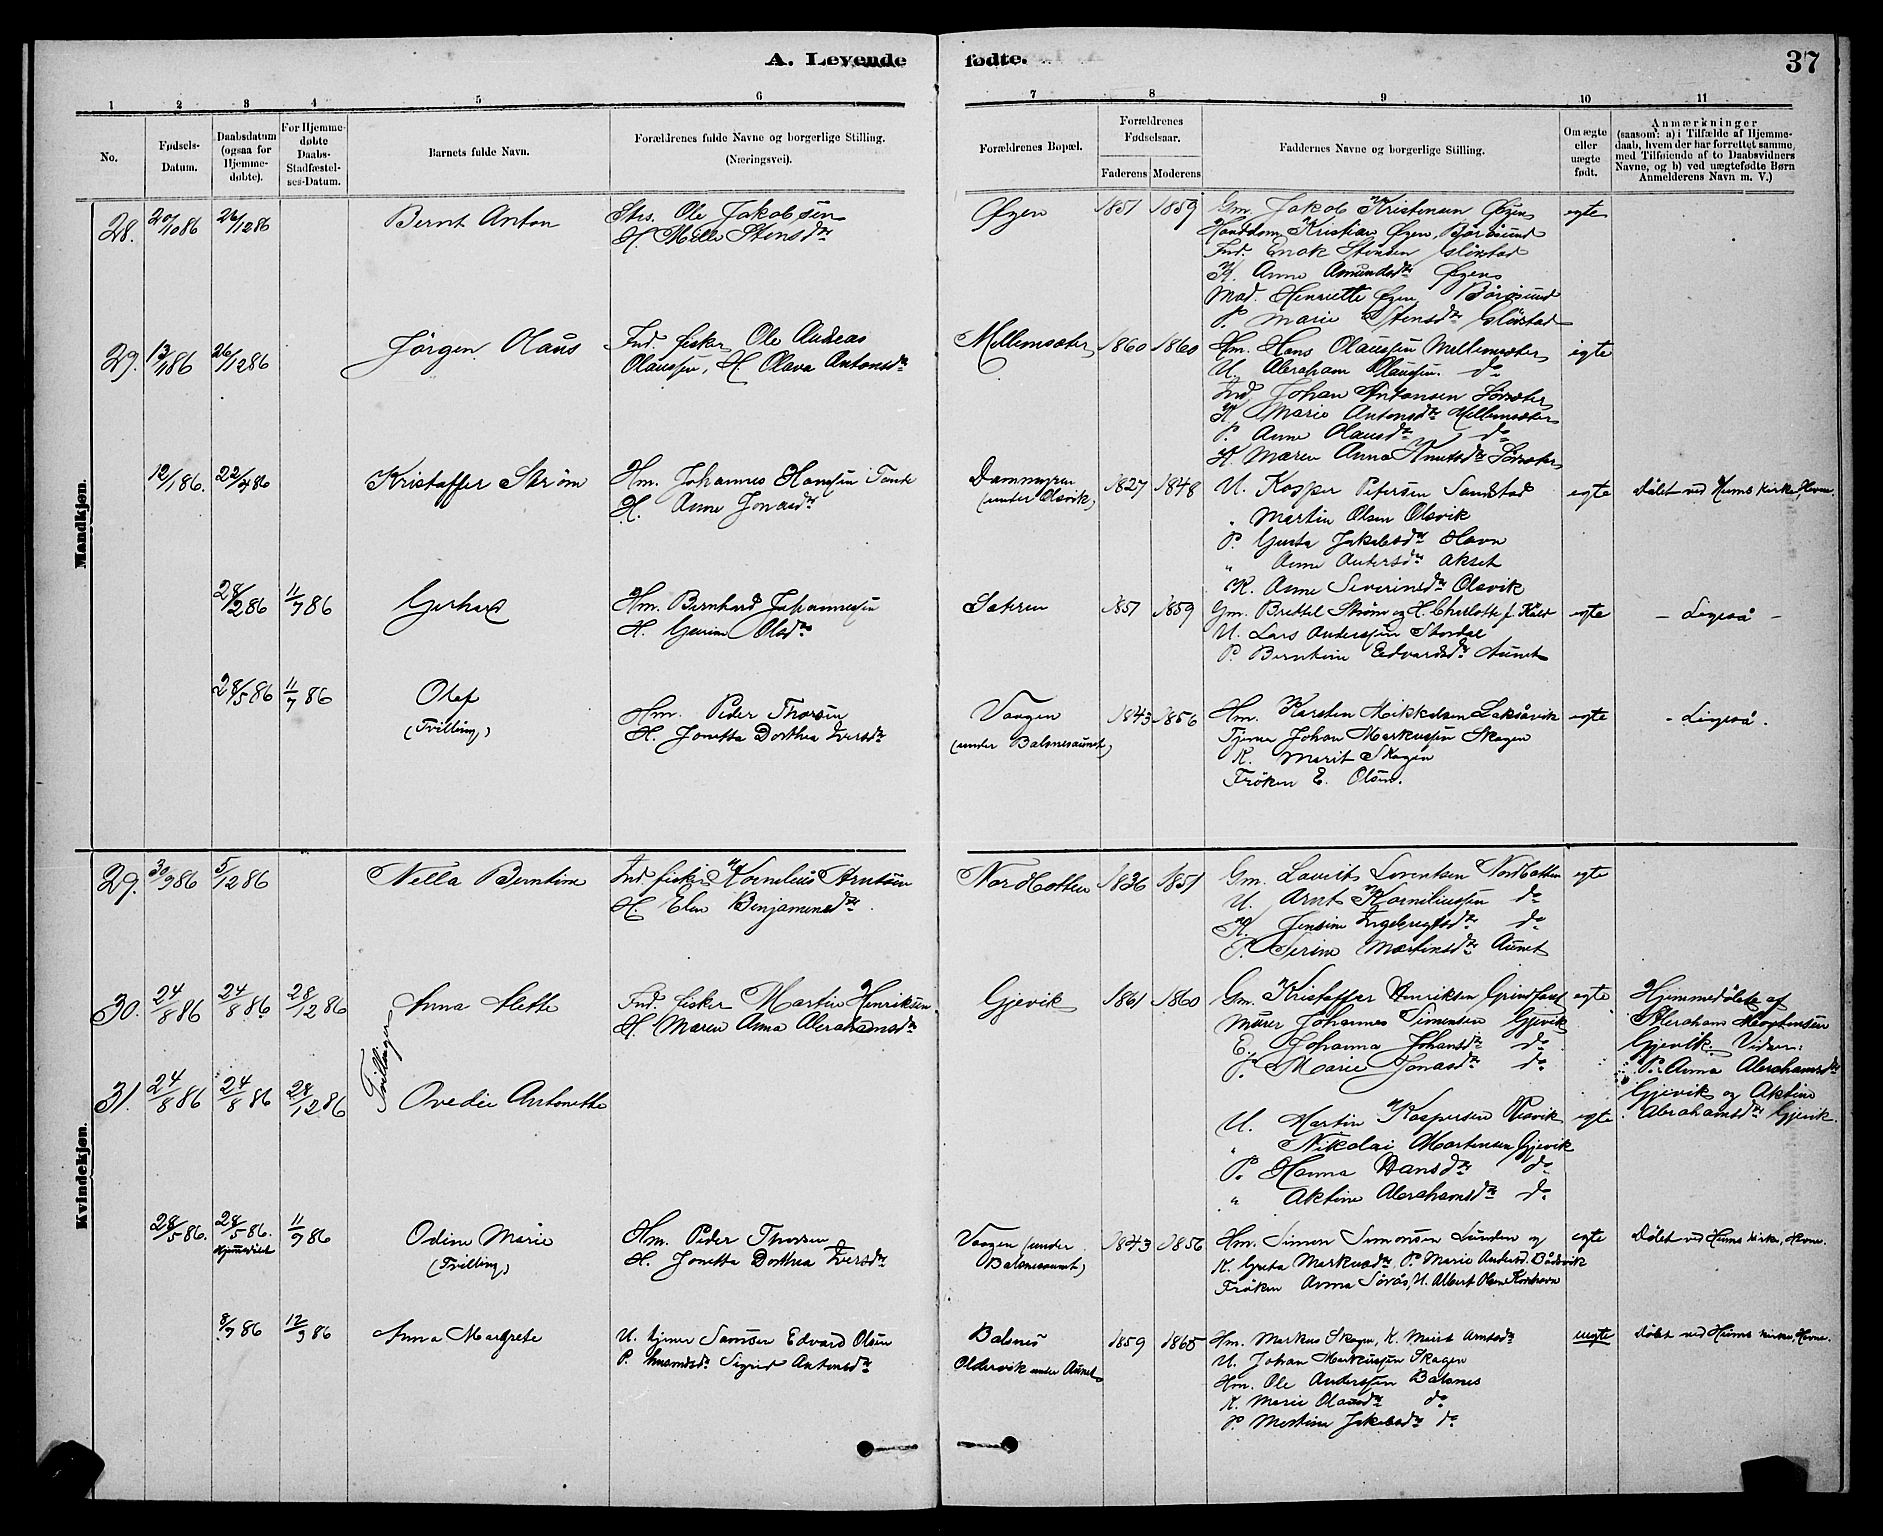 A. Levende fødte. 37
1 2 3 4 5 6 7 8 9 10 11
No.
Fødsels-Datum.
Daabsdatum (ogsaa for Hjemme-døbte).
For Hjemme-døbte Daabs-Stadfæstel-ses-Datum.
Barnets fulde Navn.
Forældrenes fulde Navne og borgerlige Stilling. (Næringsvei).
Forældrenes Bopæl.
Forældrenes Fødselsaar.
Faderens Moderens
Faddernes Navne og borgerlige Stilling.
Om ægte eller uægte født.
Anmærkninger
(saasom: a) i Tilfælde af Hjemme-
daab, hvem der har forrettet samme,
med Tilføiende af to Daabsvidners
Navne, og b) ved uægtefødte Børn
Anmelderens Navn m. V.)
Mandkjøn.
28. 20/10 86 26/12 86 Bernt Anton
Ole Jakobsen
H. Stensdr
Øyen 1851 1859
Gm. Jakob Kristensen Øyen
Kristian Øyen, Børøsund
Ind. Enok Stensen
K. Anne Amundsdr Øyen
Mad. Henriette Øyen Børøsund
P. Marie Stensdr
egte
29. 13/11 86 26/12 86 Jørgen Olaus
Ind. fisker Ole Andreas
Olaussen, H. Olava Antonsdr
Mellemsæter 1860 1860
Hm. Hans Olaussen Mellemsæter
U. Abraham Olaussen do
Ind. Johan Antonsen Sørsæter
K. Marie Antonsdr Mellemsæter
P. Anne Olausdr do
K. Maren Anna Knutsdr Sørsæter
egte
12/1 86. 22/4 86 Kristaffer Strøm
Hm. Johannes Hanssen
H. Anne Jonasdr
Dammyren
(under Olsvik)
1827 1848
U. Kasper Petersen Sandstad
" Martin Olsen Olsvik
P. Jakobsdr Havn
" Anne Andersdr Akset
K. Anne Severinsdr Olsvik
egte
Døbt ved Hems kirke, Hevne.
28/2 86 11/7 86 Gerhard
Hm. Bernhard Johannessen
H. Olsdr
Sæteren 1851 1859
Gm. Brettel Strøm og H. Charlotte f.
U. Lars Anderssen Stordal
P. Berntine Edvardsdr Aunet
egte - Ligeså -
28/5 86 11/7 86 Olaf
(Tvilling)
Hm. Peder Thorsen
H. Jonetta Dorthea Iversdr
Vaagen
(under Balsnesaunet)
1843 1856
Hm. Karsten Mikkelsen Laksåvik
Tjener Johan Markussen Skagen
K. Marit Skagen
Frøken E. Olsen.
egte - Ligeså.
Kvindekjøn.
29. 30/9 86 5/12 86 Nella Berntine
Ind. fisker Kornelius Arntsen
H. Elen Benjaminsdr.
Nordbotten 1836 1851
Gm. Lavrits Lorentsen Nordbotten
U. Arnt Korneliussen do
K. Jensine Ingebrigtsdr do
P. Serine Martinsdr Aunet
egte
30. 24/8 86 24/8 86 28/12 86 Anna Alette
Tvillinger
Ind. fisker Martin Henriksen
H. Maren Anna Abrahamsdr
Gjevik 1861 1860
Gm. Kristaffer Henriksen
Murer Johannes Simensen Gjevik
E. Johanna Johansdr do
P. Marie Jonasdr do
egte
Hjemmedøbte af
Abraham Mortensen
Gjevik. Vidner:
P. Anna Abrahamsdr
Gjevik og Aktine
Abrahamsdr Gjevik.
31. 24/8 86 24/8 86 28/12 86 Ovedie Antonette
U. Martin Kaspersen
" Nikolai Mortensen Gjevik
P. Hanna Hansdr do
" Aktine Abrahamsdr do
egte
28/5 86. 28/5 86. Hjemmedøbt 11/7 86
Odine Marie
(Tvilling)
Hm. Peder Thorsen
H. Jonetta Dorthea Iversdr
Vaagen (under
Balsnesaunet)
1843 1856
Hm. Simon Simonsen Sunden og
K. Greta Markusdr, P. Marie Andersd.
Frøken Anna Sørås, U. Albert Olsen
egte
Døbt ved Hems kirke, Hevne.
8/7 86 12/9 86 Anna Margrete
U. tjener Edvard Olsen
P. Sigrid Antonsdr
Balsnes
Oldervik under Aunet
1859 1865
Hm. Markus Skagen, K. Marit Arntsdr
U. Johan Markussen Skagen
Hm. Ole Anderssen Balsnes
K. Marie Olausdr do
P. Martine Jakobsdr do
uegte
Døbt ved Hems kirke, Hevne.